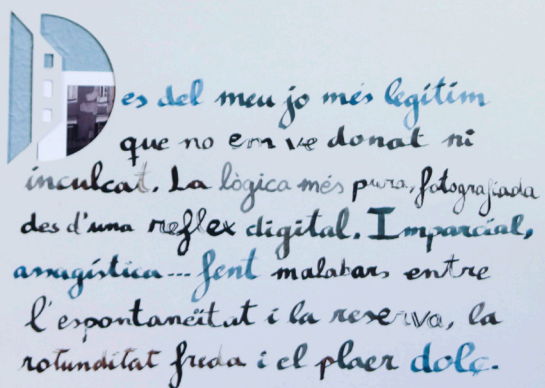 Des del meu jo més legítim
que no em ve donat ni
inculcat. La lògica més pura, fotografiada
des d'una reflex digital. Imparcial,
assagística... fent malabars entre
l'espontaneïtat i la reserva, la
rotunditat freda i el plaer dolç.